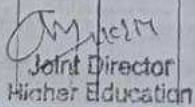 Joint Director
Higher Education